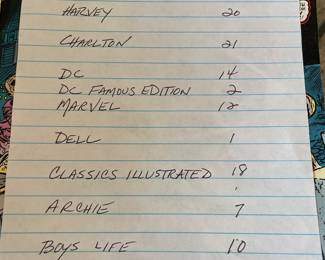 HARVEY 20
CHARLTON 21
DC 14
DC FAMOUS EDITION 2
MARVEL 12
DELL 1
CLASSICS ILLUSTRATED 18
ARCHIE 7
BOYS LIFE 10